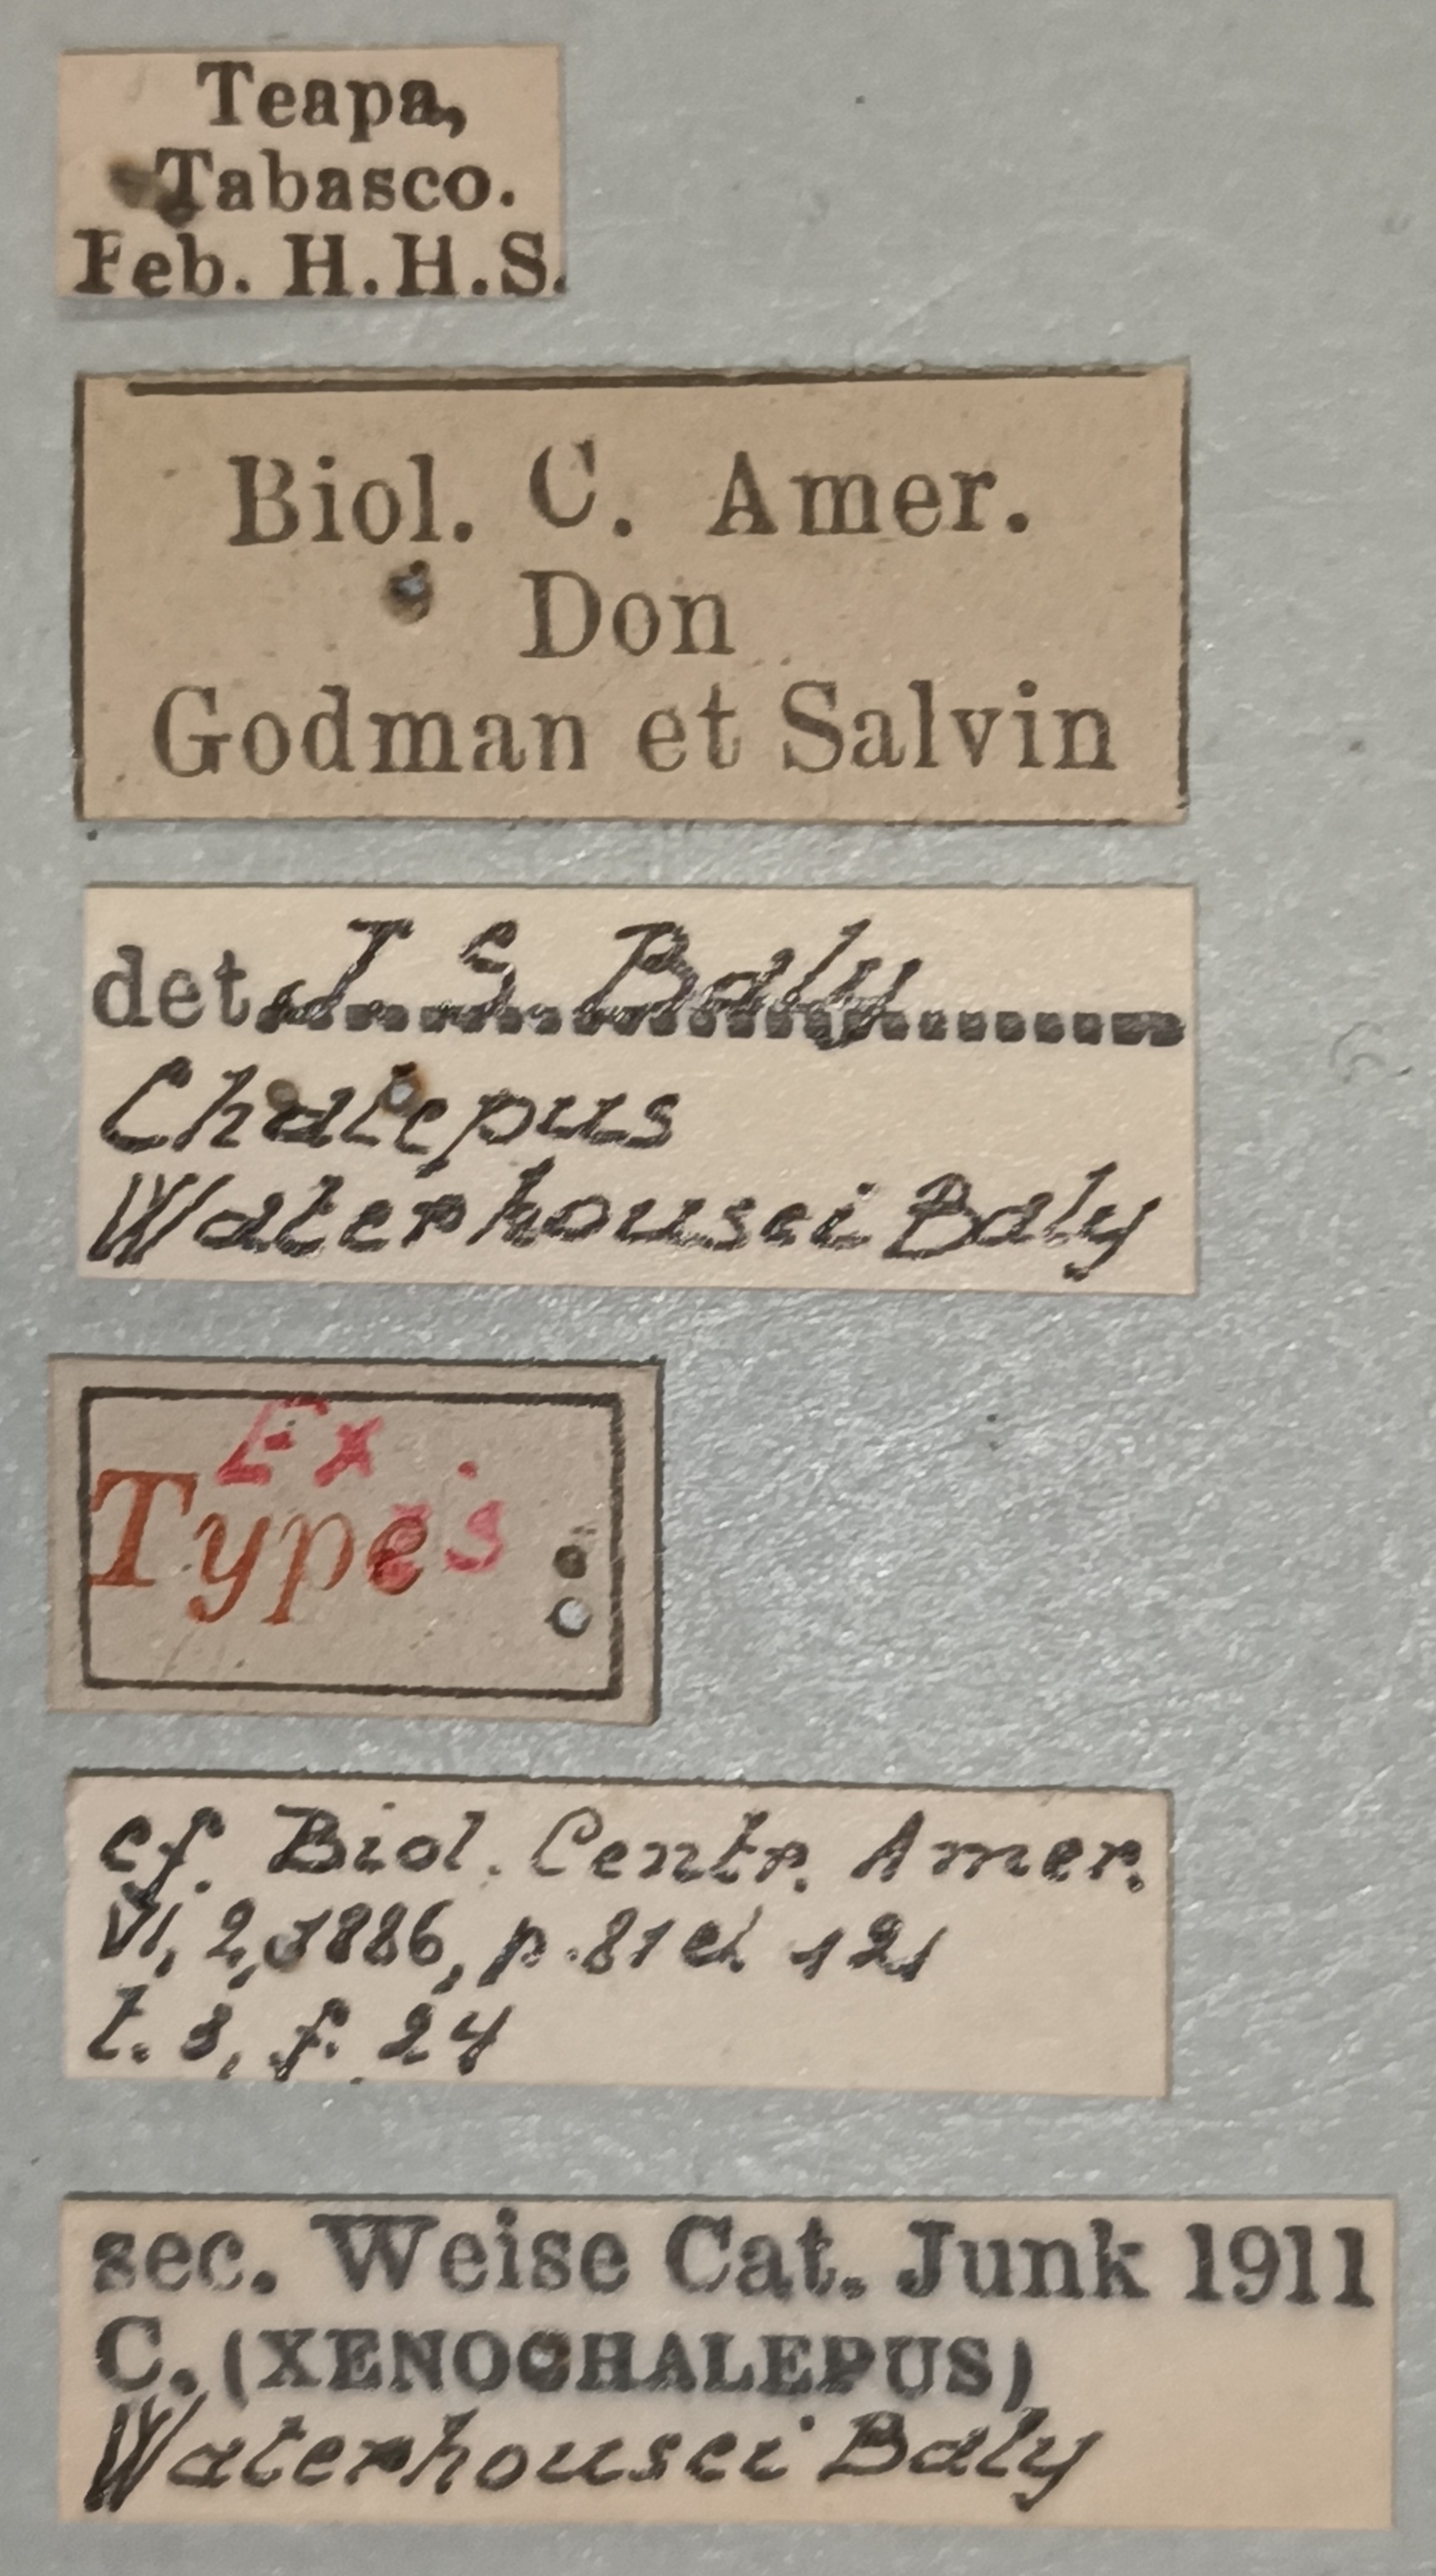 Teapa,
Tabasco.
Feb. H.H.S.
Biol. C. Amer.
Don
Godman et Salvin
det. J. S. Baly
Chalepus
Waterhousei Baly
Ex
Typis
cf. Biol. Centr. Amer.
VI, 2, 1886, p. 81 et 121
t. 3, f. 24
sec. Weise Cat. Junk 1911
C. (XENOCHALEPUS)
Waterhousei Baly